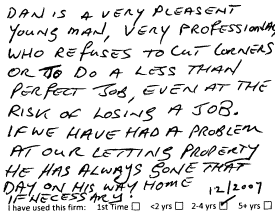 DAN IS A VERY PLEASENT
YOUNG MAN, VERY PROFESSIONAL,
WHO REFUSES TO CUT CORNERS
OR TO DO A LESS THAN
PERFECT JOB, EVEN AT THE
RISK OF LOSING A JOB.
IF WE HAVE HAD A PROBLEM
AT OUR LETTING PROPERTY
HE HAS ALWAYS GONE THAT
DAY ON HIS WAY HOME
IF NECESSARY 12/2007
I have used this firm: 1st Time <2 yrs 2-4 yrs 5+ yrs